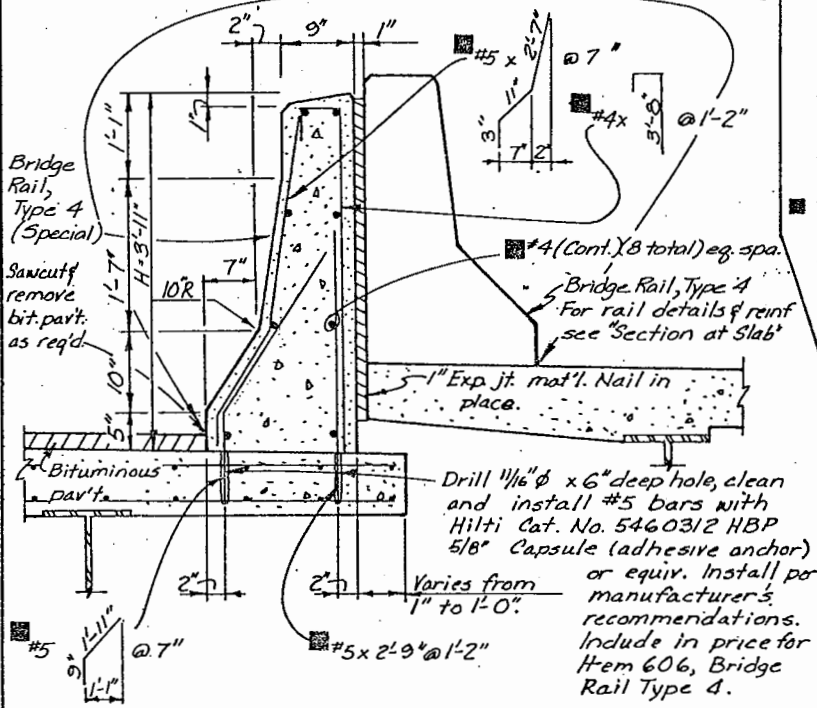 2"
9"
1"
#5 x
3"
11"
2'-7"
7"
2"
@ 7"
#4x
3'-8"
@ 1'-2"
1"
1'-1"
H=3'-11"
1'-7"
10"
5"
Bridge
Rail,
Type 4
(Special)
7"
10"R
Sawcut &
remove
bit. pav't.
as req'd
#4 (Cont.)(8 total) eq. spa.
Bridge Rail, Type 4
For rail details & reinf
see "Section at Slab"
1" Exp. jt. mat'l. Nail in
place.
Bituminous
pav't
Drill 11/16"ø x 6" deep hole, clean
and install #5 bars with
Hilti Cat. No. 5460312 HBP
5/8" Capsule (adhesive anchor)
or equiv. Install per
manufacturer's
recommendations.
Include in price for
Item 606, Bridge
Rail Type 4.
2"
2"
Varies from
1" to 1'-0".
#5
9"
1'-11"
1'-1"
@ 7"
#5 x 2'-9" @ 1'-2"